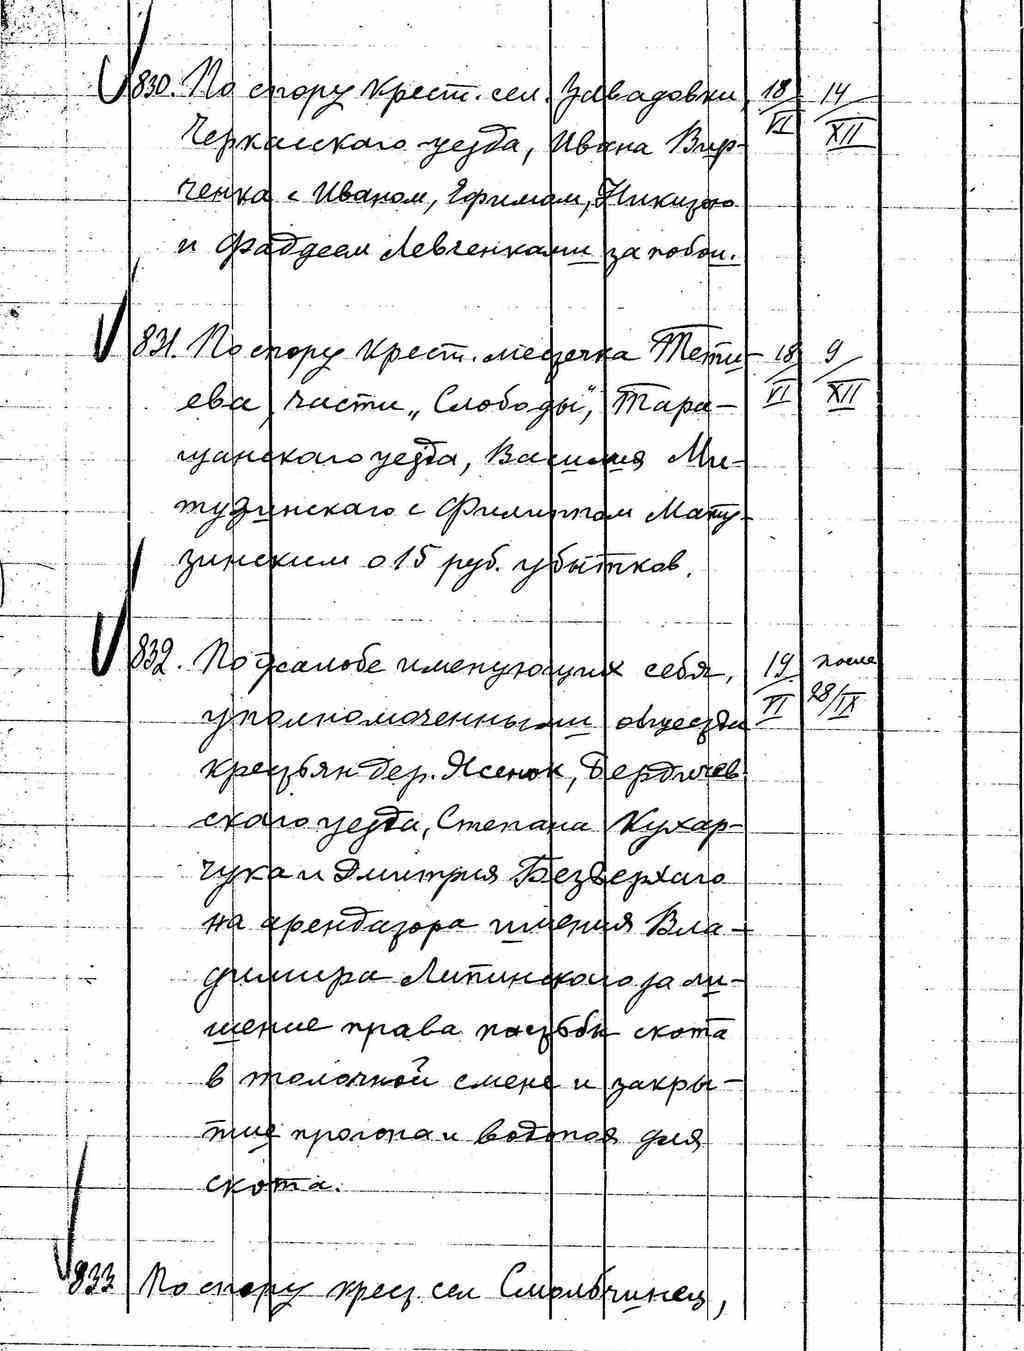 830. По спору крест. сел. Завадовки, 18/VI 14/XII
Черкасского уезда, Ивана Вир-
ченка с Иваном, Ефимом, Никитою
и Фаддеем Левченками за побои.
831. По спору крест. местечка Тети- 18/VI 9/XII
ева, части „Слободы", Тара-
щанского уезда, Василия Ми-
тузинского с Филиппом Мату-
зинским о 15 руб. убытков.
832. По жалобе именующих себя, 19/VI после 28/IX
уполномоченными общества
крестьян дер. Ясенок, Бердичев-
ского уезда, Степана Кухар-
чука и Дмитрия Безверхаго
на арендатора имения Вла-
димира Липинского за ли-
шение права пастьбы скота
в толочной смене и закры-
тие прогона и водопоя для
скота.
833 По спору крест сел Смольчинец,